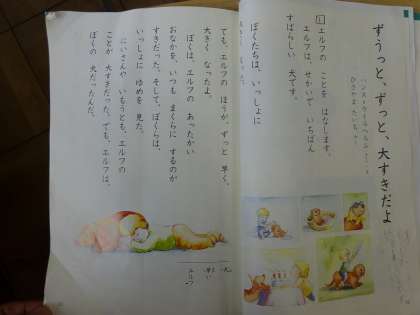 ずうっと、ずっと、大すきだよ
1 エルフの ことを はなします。
エルフは、せかいで いちばん
すばらしい 犬です。
ぼくたちは、いっしょに
ても、エルフの ほうが、ずっと 早く、
大きく なったよ。
ぼくは、エルフの あったかい
おなかを、いつも まくらに するのが
すきだった。そして、ぼくらは、
いっしょに ゆめを 見た。
にいさんや いもうとも、エルフの
ことが 大すきだった。でも、エルフは、
ぼくの 犬だったんだ。
エルフ